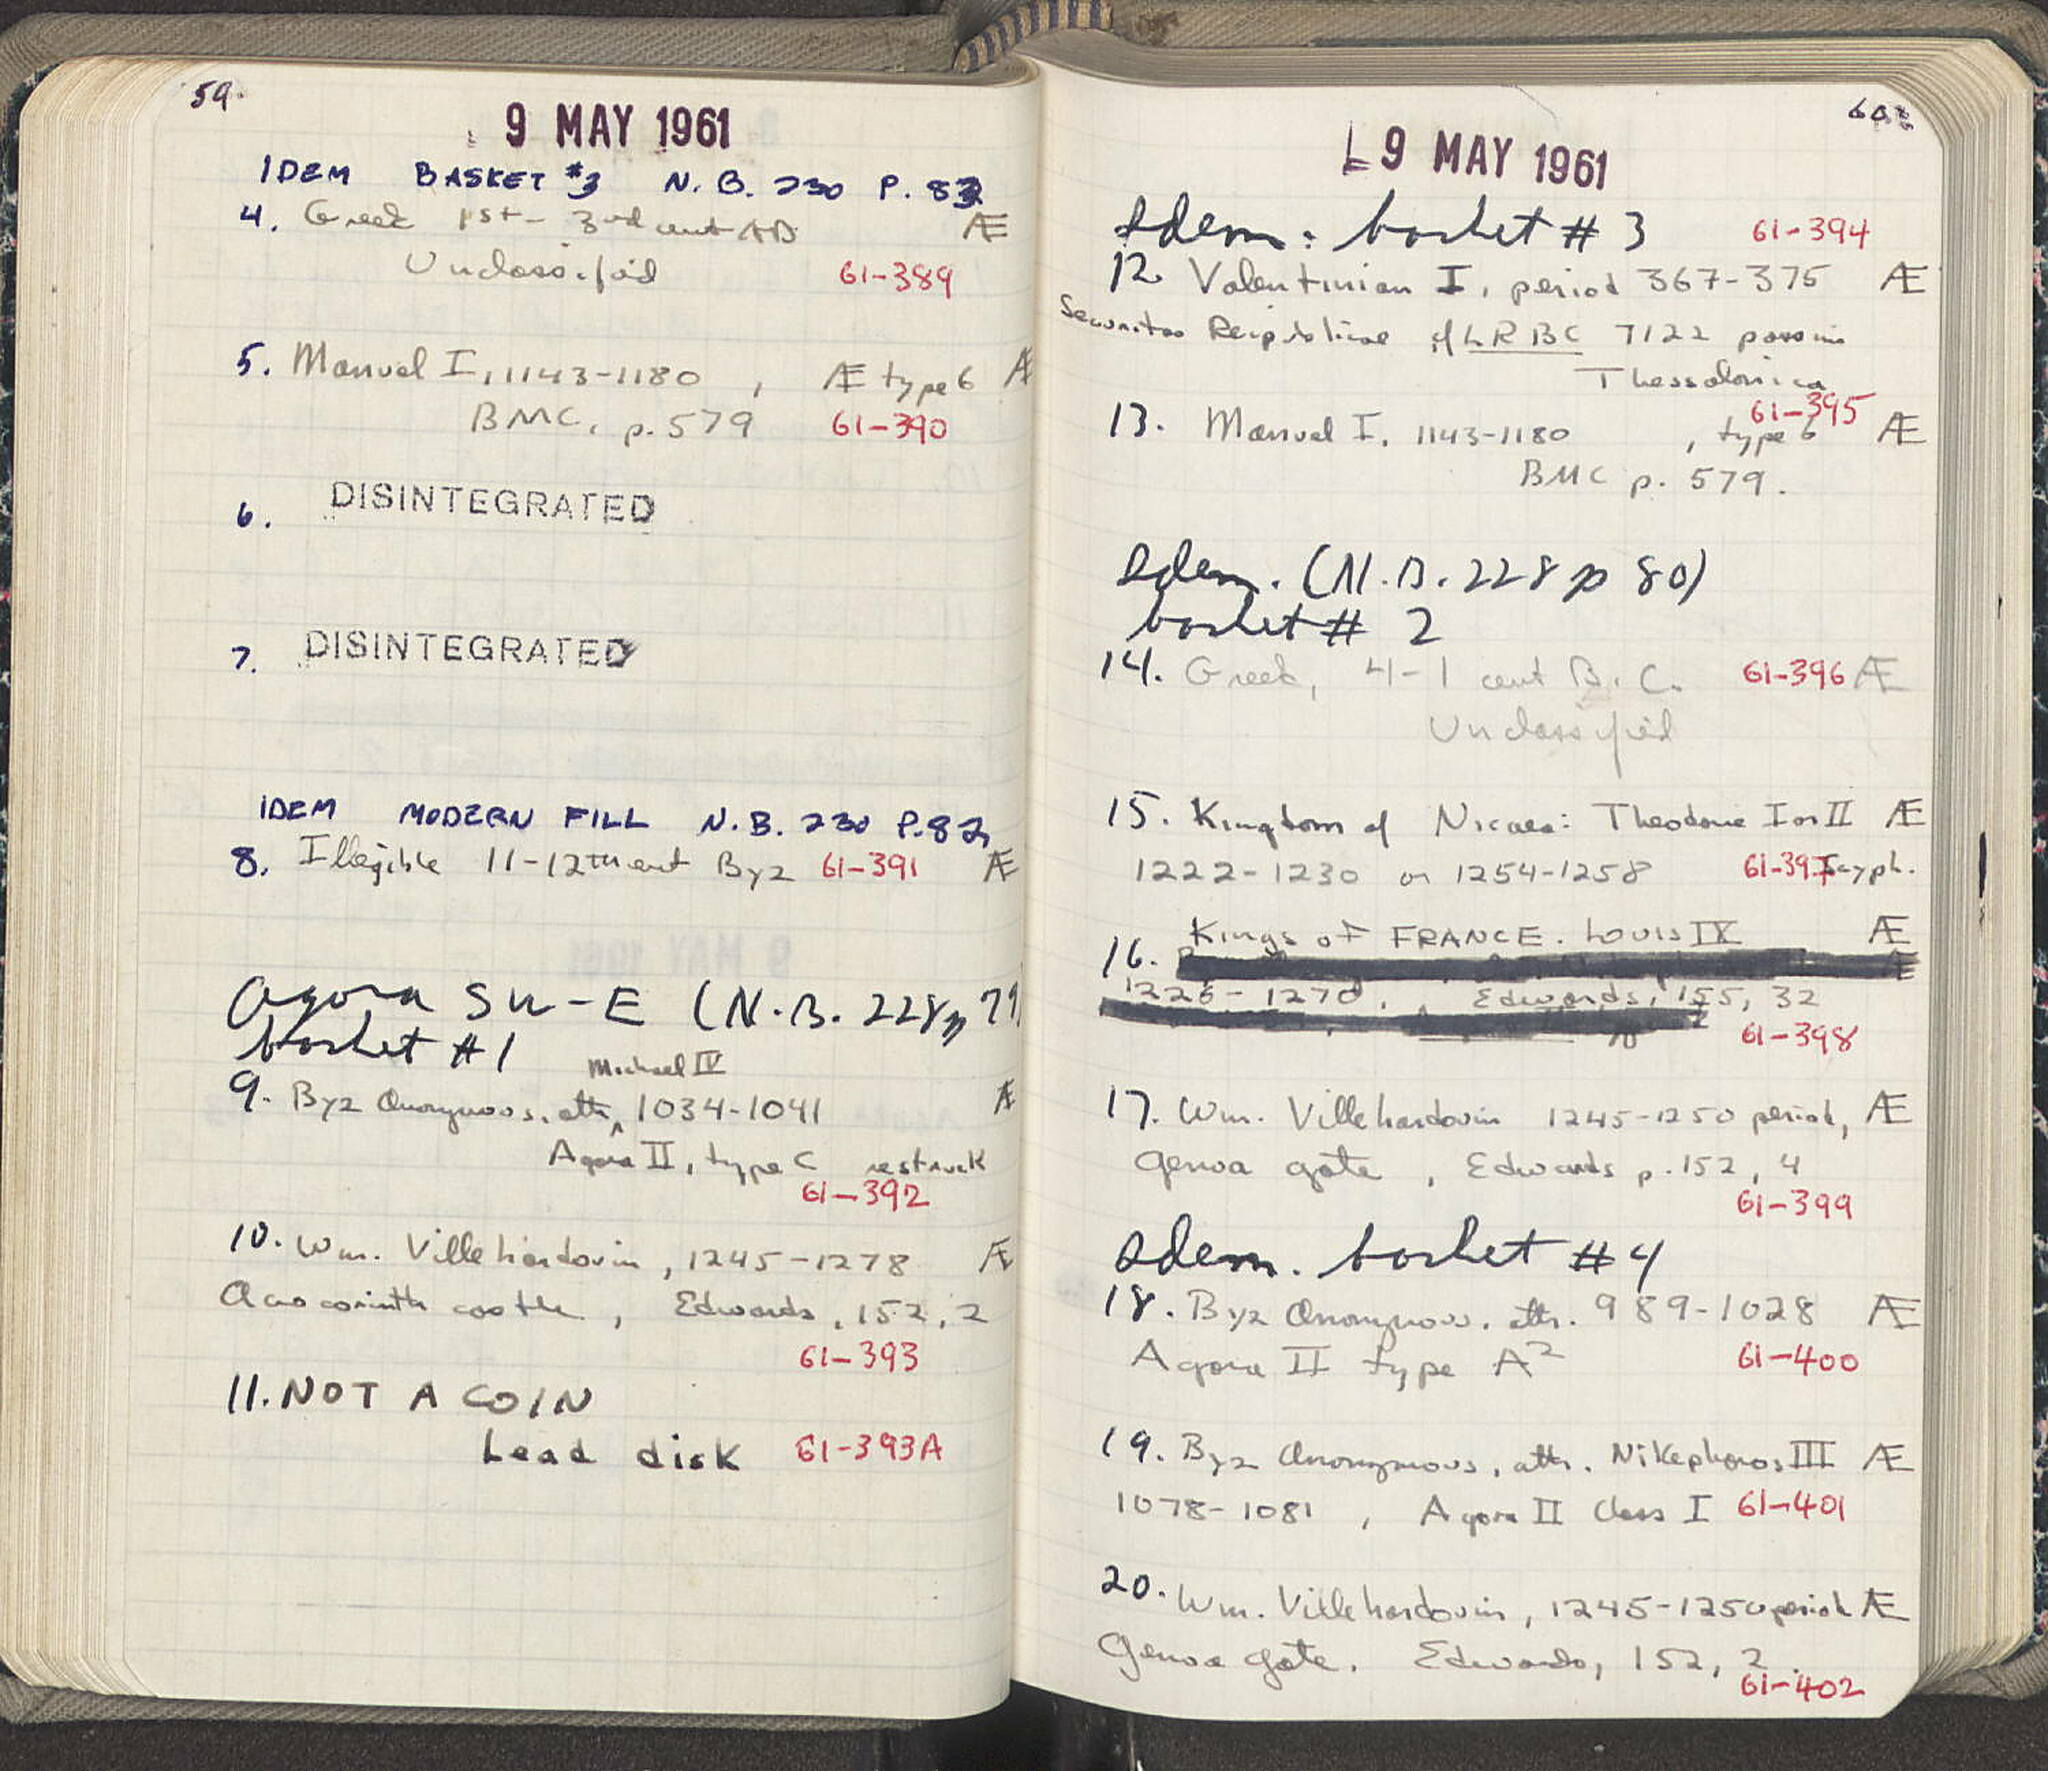 59.
9 MAY 1961
IDEM BASKET #3 N.B. 230 P. 83
4. Greek 1st - 3rd cent AD Æ
Unclassified 61-389
5. Manuel I, 1143-1180, Æ type 6 Æ
BMC, p. 579 61-390
6. DISINTEGRATED
7. DISINTEGRATED
IDEM MODERN FILL N.B. 230 P. 82
8. Illegible 11-12th cent Byz 61-391 Æ
Agora SW-E (N.B. 228 p 79)
basket #1
Michael IV
9. Byz Anonymous, attr. ^ 1034-1041 Æ
Agora II, type C restruck
61-392
10. Wm. Villehardouin, 1245-1278 Æ
Acrocorinth castle, Edwards, 152, 2
61-393
11. NOT A COIN
Lead disk 61-393A
60
9 MAY 1961
Idem: basket #3 61-394
12. Valentinian I, period 367-375 Æ
Securitas Reipublicae cf LRBC 7122 passim
Thessalonica
61-395
13. Manuel I, 1143-1180, type 6 Æ
BMC p. 579.
Idem. (N.B. 228 p 80)
basket # 2
14. Greek, 4-1 cent B.C. 61-396 Æ
Unclassified
15. Kingdom of Nicaea: Theodore I or II Æ
1222-1230 or 1254-1258 61-397 Scyph.
Kings of FRANCE. Louis IX Æ
16.
1226-1270, Edwards, 155, 32
61-398
17. Wm. Villehardouin 1245-1250 period, Æ
Genoa gate, Edwards p. 152, 4
61-399
Idem. basket #4
18. Byz Anonymous, attr. 989-1028 Æ
Agora II type A2 61-400
19. Byz Anonymous, attr. Nikephoros III Æ
1078-1081, Agora II Class I 61-401
20. Wm. Villehardouin, 1245-1250 period Æ
Genoa gate. Edwards, 152, 2
61-402